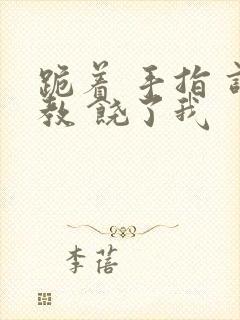 跪着 手指 教 饶了我
李蓓